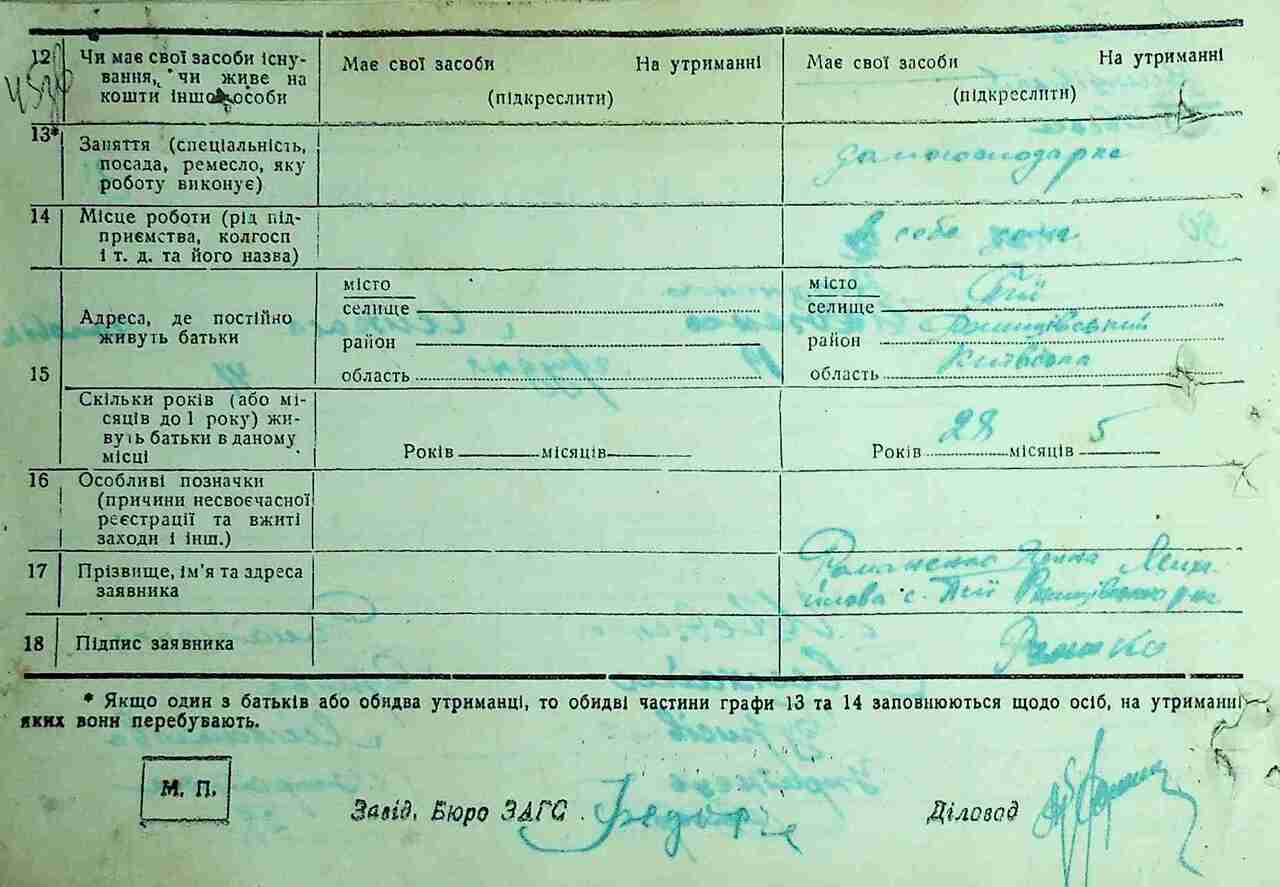 12 Чи має свої засоби існу-
вання, чи живе на
кошти іншої особи
Має свої засоби На утриманні
(підкреслити)
Має свої засоби На утриманні
(підкреслити)
13* Заняття (спеціальність,
посада, ремесло, яку
роботу виконує)
домогосподарка
14 Місце роботи (рід під-
приємства, колгосп
і т. д. та його назва)
в себе дома
15 Адреса, де постійно
живуть батьки
місто
селище
район
область
місто Пії
селище
район
область Київська
Скільки років (або мі-
сяців до 1 року) жи-
вуть батьки в даному
місці
Років місяців
Років 28 місяців 5
16 Особливі позначки
(причини несвоєчасної
реєстрації та вжиті
заходи і інш.)
17 Прізвище, ім’я та адреса
заявника
Романенко Ганна
с. Пії
18 Підпис заявника
* Якщо один з батьків або обидва утриманці, то обидві частини графи 13 та 14 заповнюються щодо осіб, на утриманні
яких вони перебувають.
М. П.
Завід. Бюро ЗАГС
Діловод